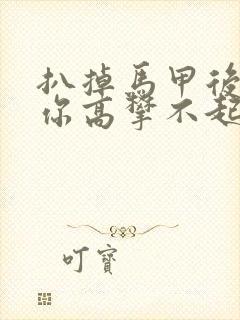 扒掉馬甲後
你高攀不起
叮寶